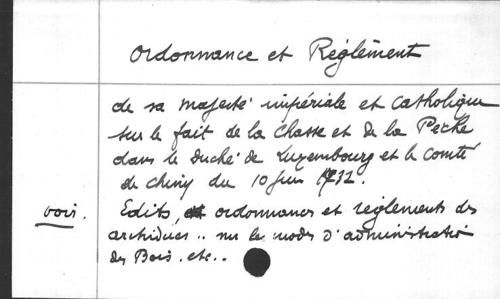 Ordonnance et Règlement
de sa majesté impériale et catholique
sur le fait de la Chasse et de la Peche
dans le duché de Luxembourg et le Comté
de Chiny du 10 juin 1732.
voir. Edits, et ordonnances et reglements des
archiducs .. sur le modes d'administration
des Bois. etc..